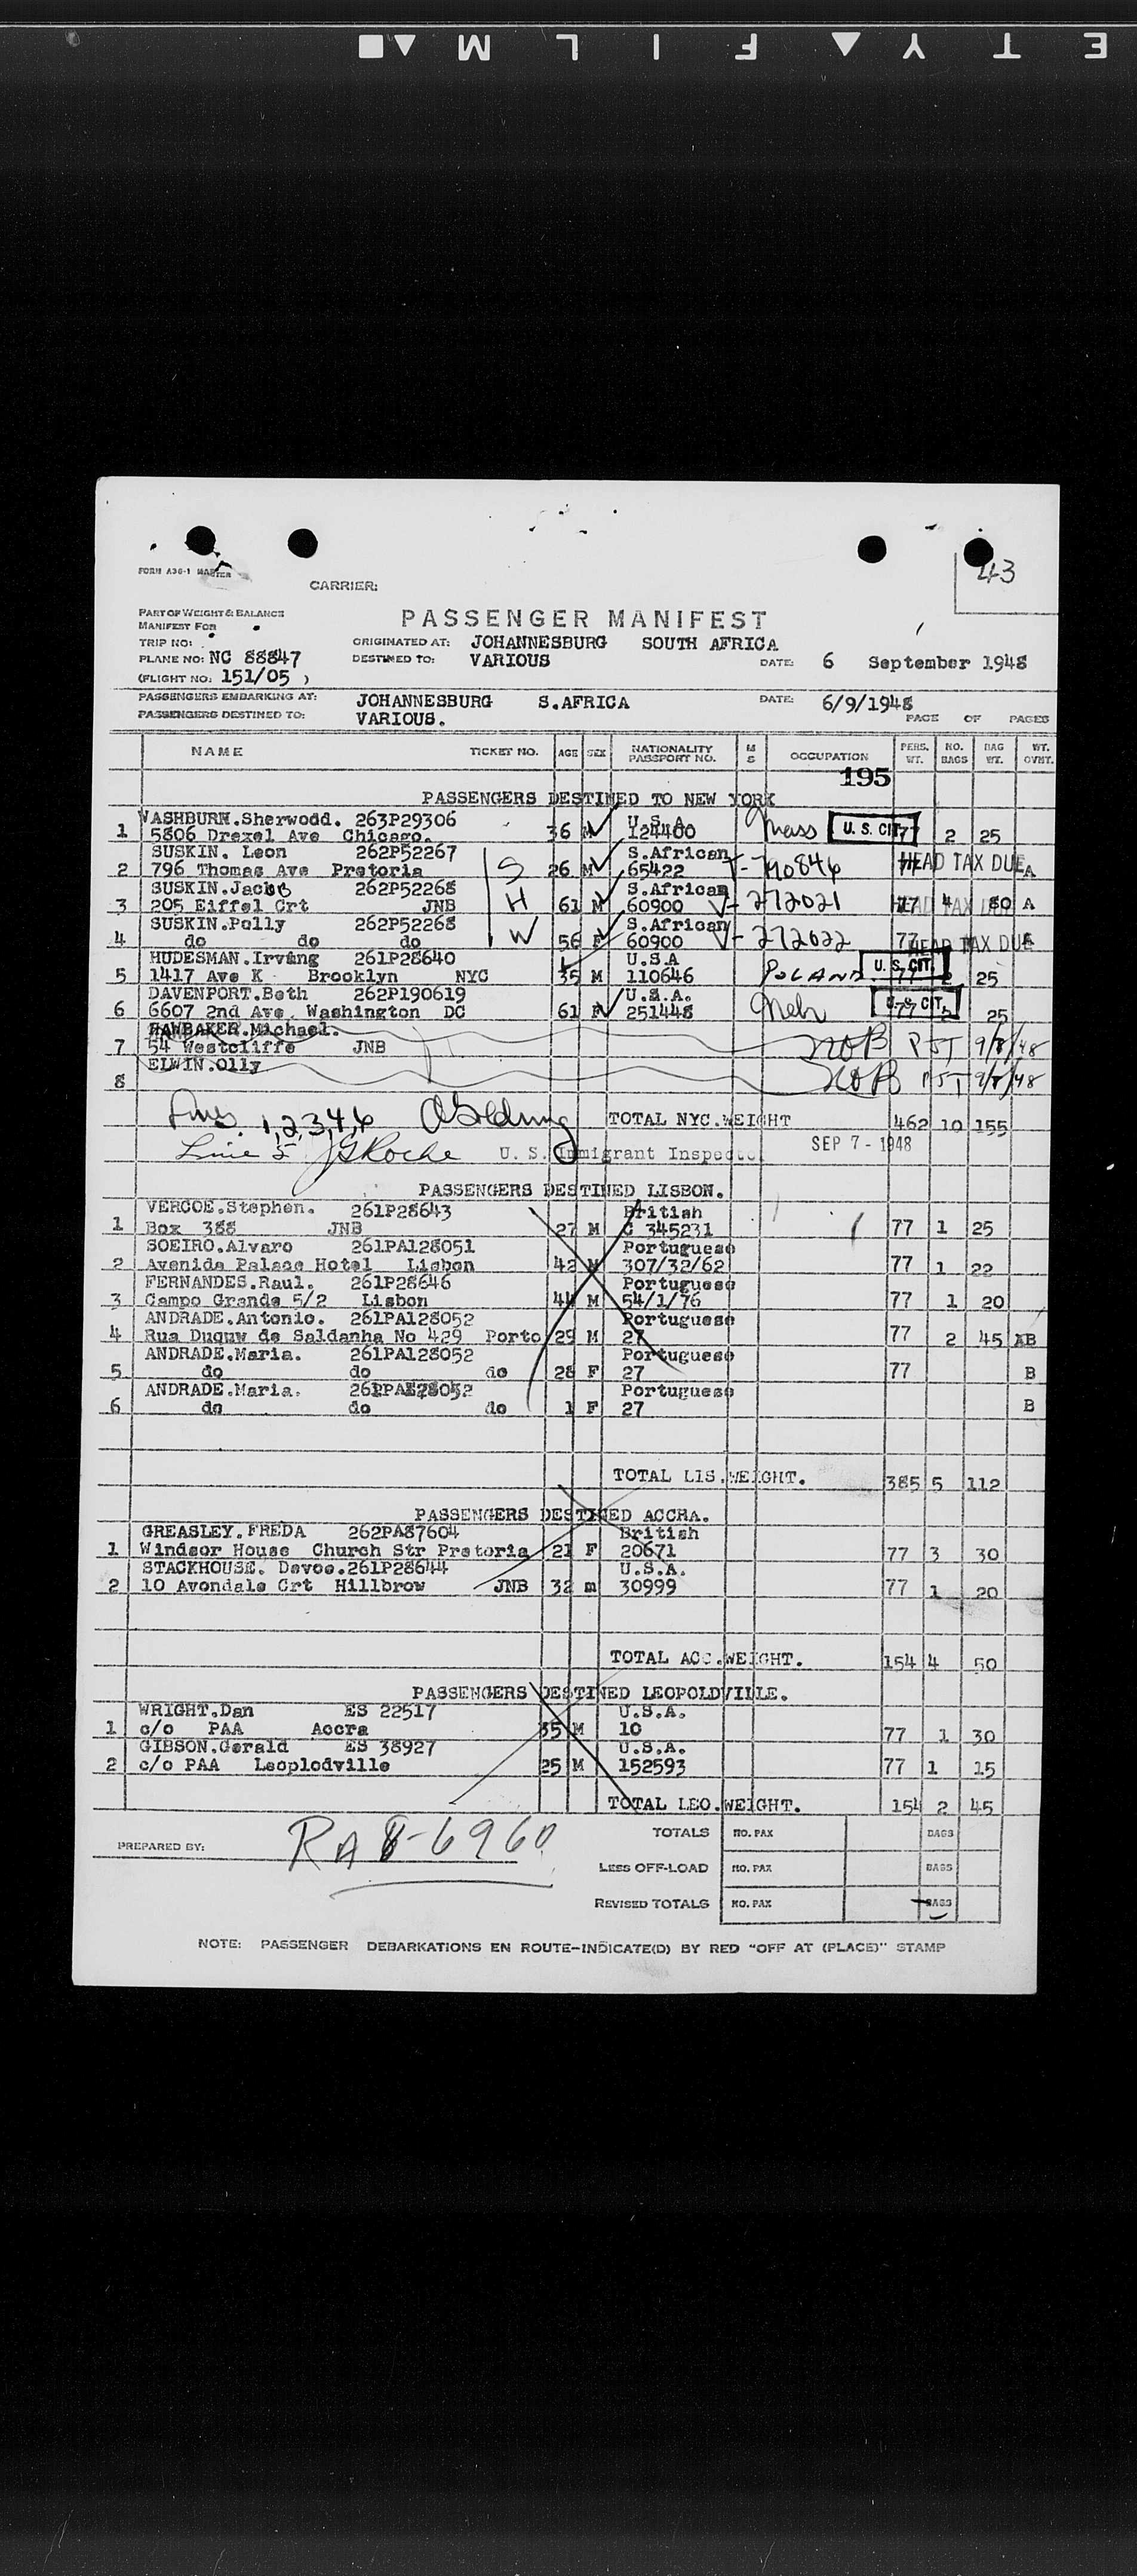 E T Y ▲ F I L M ▲▼■
43
FORM A36-1 MASTER
CARRIER:
PART OF WEIGHT & BALANCE
MANIFEST FOR
PASSENGER MANIFEST
TRIP NO:
ORIGINATED AT: JOHANNESBURG SOUTH AFRICA
PLANE NO: NC 88847 DESTINED TO: VARIOUS DATE: 6 September 1948
(FLIGHT NO: 151/05 )
PASSENGERS EMBARKING AT: JOHANNESBURG S.AFRICA DATE: 6/9/1948
PASSENGERS DESTINED TO: VARIOUS. PAGE OF PAGES
NAME TICKET NO. AGE SEX NATIONALITY PASSPORT NO. M S OCCUPATION PERS. WT. NO. BAGS BAG WT. WT. OVHT.
195
PASSENGERS DESTINED TO NEW YORK
WASHBURN.Sherwodd. 263P29306 U.S.A.
1 5806 Drexel Ave Chicago. 36 M 124400 Mass U. S. CIT. 77 2 25
SUSKIN. Leon 262P52267 S.African
2 796 Thomas Ave Pretoria S 26 M 65422 V- HEAD TAX DUE A
SUSKIN.Jacob 262P52268 S.African
3 205 Eiffel Crt JNB H 61 M 60900 V- 272021 77 4 80 A HEAD TAX DUE
SUSKIN.Polly 262P52268 S.African
4 do do do W 56 F 60900 V- 272022 77 HEAD TAX DUE
HUDESMAN.Irving 261P28640 U.S.A
5 1417 Ave K Brooklyn NYC 35 M 110646 POLAND U. S. CIT. 25
DAVENPORT.Beth 262P190619 U.S.A.
6 6607 2nd Ave. Washington DC 61 F 251448 Neb U. S. CIT. 77 25
HAWBAKER.Michael.
7 54 Westcliffe JNB NOB PJT 9/8/48
ELWIN.Olly
8 NOB PJT 9/8/48
Lines 1,2,3,4,6 TOTAL NYC.WEIGHT 462 10 155
Line 5 JGRoche U. S. Immigrant Inspector SEP 7 - 1948
PASSENGERS DESTINED LISBON.
VERCOE.Stephen. 261P28643 British
1 Box 388 JNB 27 M C 345231 77 1 25
SOEIRO.Alvaro 261PA128051 Portuguese
2 Avenida Palace Hotel Lisbon 42 M 307/32/62 77 1 22
FERNANDES.Raul. 261P28646 Portuguese
3 Campo Grande 5/2 Lisbon 44 M 54/1/76 77 1 20
ANDRADE.Antonio. 261PA128052 Portuguese
4 Rua Duquw de Saldanha No 429 Porto 29 M 27 77 2 45 AB
ANDRADE.Maria. 261PA128052 Portuguese
5 do do do 28 F 27 77 B
ANDRADE.Maria. 261PA128052 Portuguese
6 do do do 1 F 27 B
TOTAL LIS.WEIGHT. 385 5 112
PASSENGERS DESTINED ACCRA.
GREASLEY.FREDA 262PA87604 British
1 Windsor House Church Str Pretoria 21 F 20671 77 3 30
STACKHOUSE. Devoe.261P28644 U.S.A.
2 10 Avondale Crt Hillbrow JNB 32 m 30999 77 1 20
TOTAL ACC.WEIGHT. 154 4 50
PASSENGERS DESTINED LEOPOLDVILLE.
WRIGHT.Dan ES 22517 U.S.A.
1 c/o PAA Accra 35 M 10 77 1 30
GIBSON.Gerald ES 38927 U.S.A.
2 c/o PAA Leoplodville 25 M 152593 77 1 15
TOTAL LEO.WEIGHT. 154 2 45
PREPARED BY: RA 8-6960 TOTALS NO. PAX BAGS
LESS OFF-LOAD NO. PAX BAGS
REVISED TOTALS NO. PAX BAGS
NOTE: PASSENGER DEBARKATIONS EN ROUTE-INDICATE(D) BY RED "OFF AT (PLACE)" STAMP